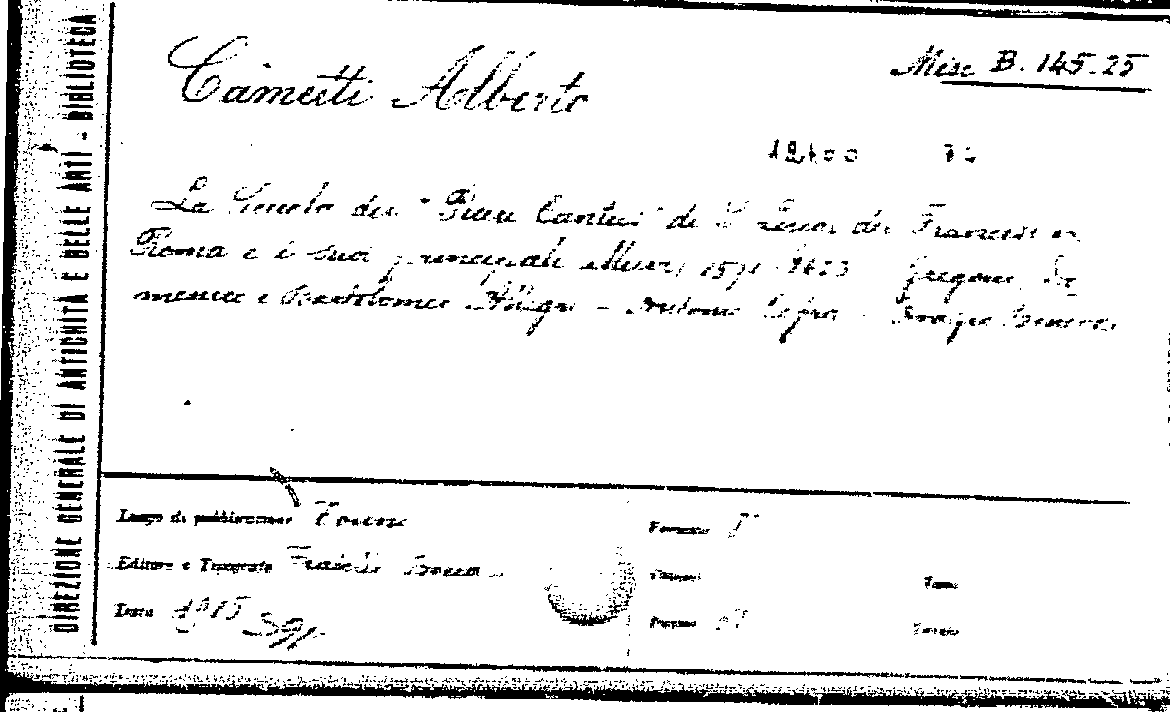 DIREZIONE GENERALE DI ANTICHITÀ E BELLE ARTI - BIBLIOTECA
Cametti Alberto
Misc B. 145.25
La Scuola dei "Pueri Cantus" di S. Luigi dei Francesi in
Roma e i suoi principali allievi 1591-1623 Gregorio, Do
menico e Bartolomeo Allegri - Antonio Cifra - Orazio Benevoli
Luogo di pubblicazione Torino
Formato 8°
Editore o Tipografo Fratelli Bocca
Volumi
Tomo
Data 1915
Pagine
Tavole